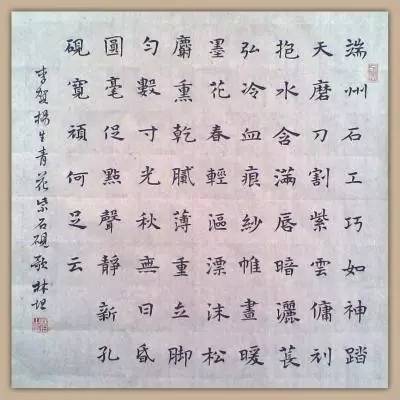 端州石工巧如神踏
天磨刀割紫雲傭刓
抱水含滿唇暗灑萇
弘冷血痕紗帷晝暖
墨花春輕漚漂沫松
麝熏乾膩薄重立脚
勻數寸光秋無日昏
圓毫促點聲靜新孔
硯寬頑何足云
李賀楊生青花紫石硯歌 林